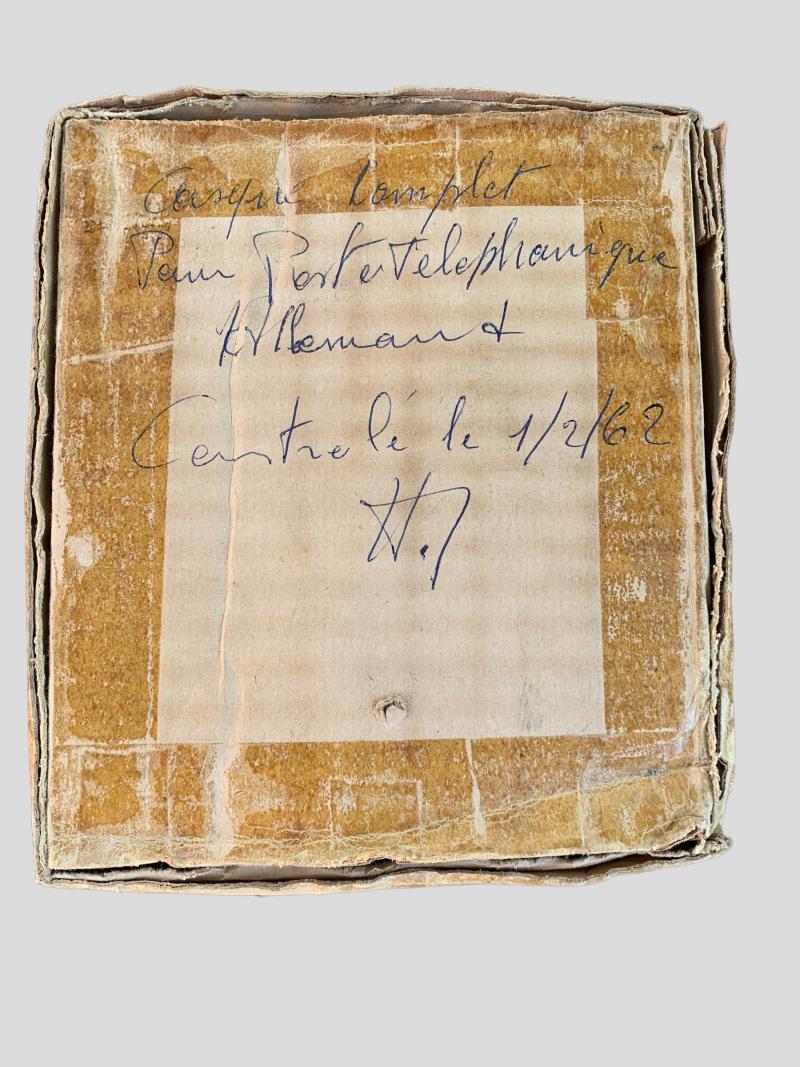 Casque Complet
Pour Poste Téléphonique
Allemand
Controlé le 1/2/62